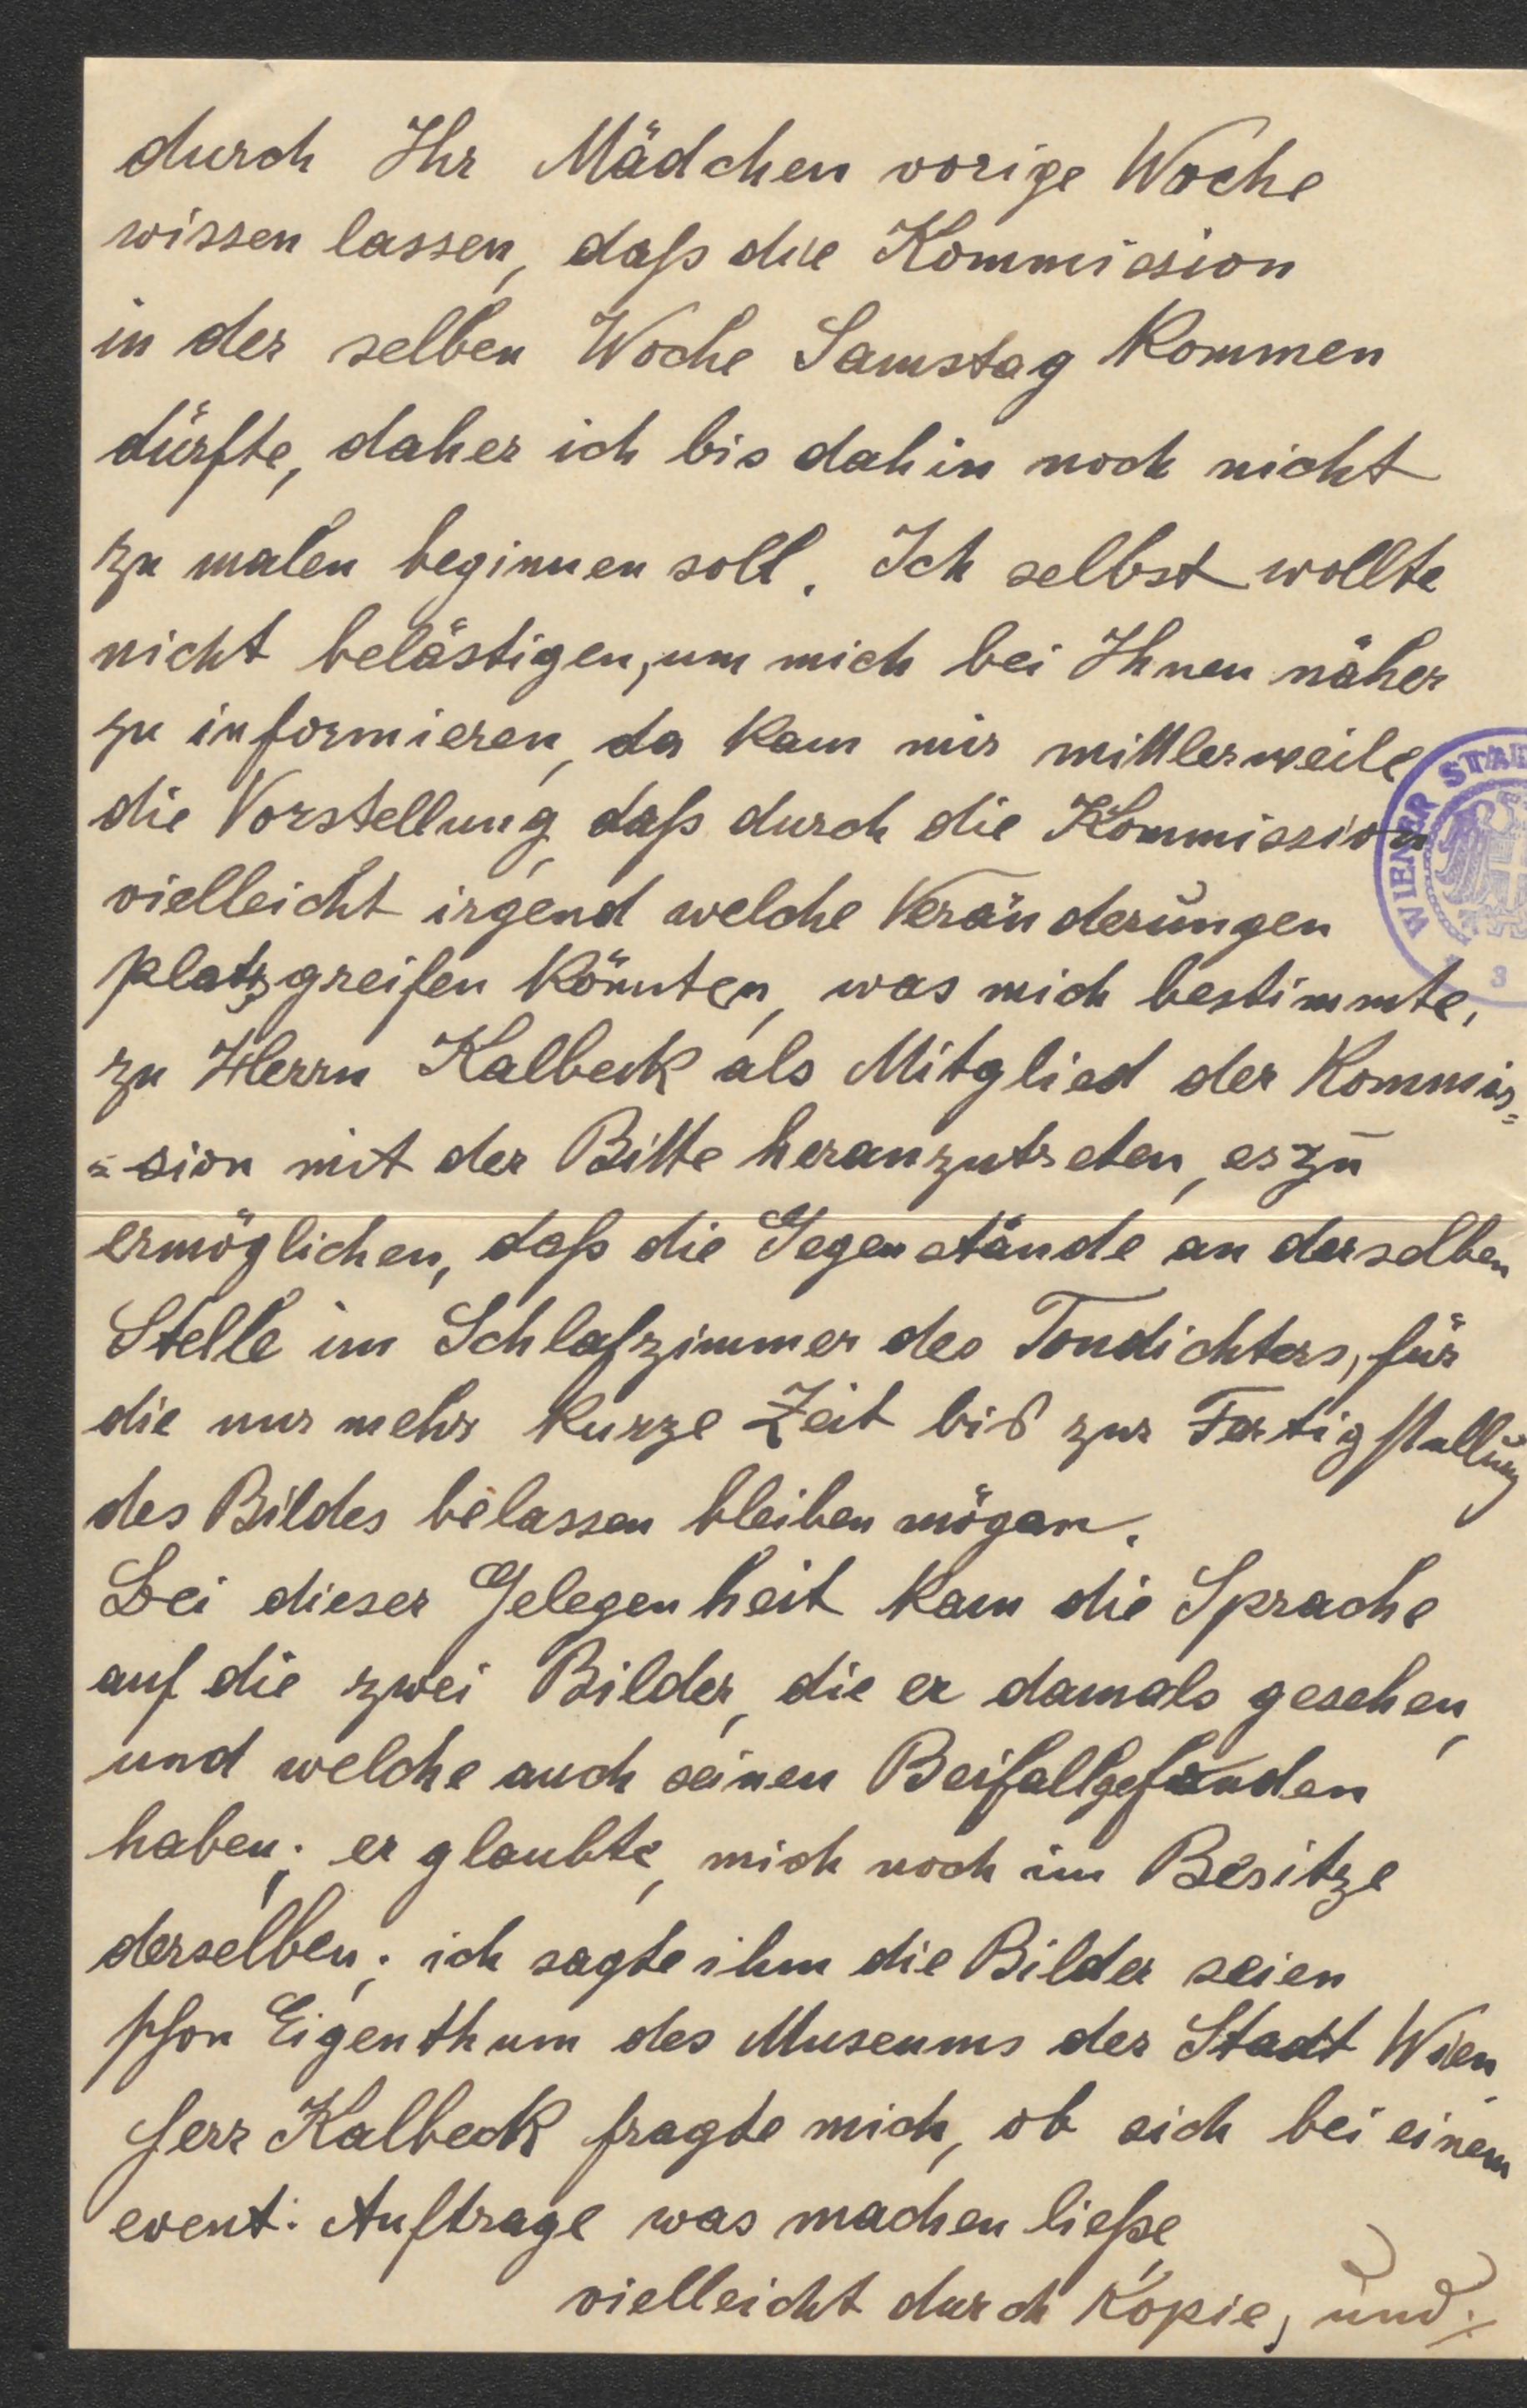 durch Ihr Mädchen vorige Woche
wissen lassen, daß die Kommission
in der selben Woche Samstag kommen
dürfte, daher ich bis dahin noch nicht
zu malen beginnen soll. Ich selbst wollte
nicht belästigen, um mich bei Ihnen näher
zu informieren, da kam mir mittlerweile
die Vorstellung, daß durch die Kommission
vielleicht irgend welche Veränderungen
platzgreifen könnten, was mich bestimmte,
zu Herrn Kalbeck als Mitglied der Kommis=
=sion mit der Bitte heranzutreten, es zu
ermöglichen, daß die Gegenstände an derselben
Stelle im Schlafzimmer des Tondichters, für
die nur mehr kurze Zeit bis zur Fertigstellung
des Bildes belassen bleiben mögen.
Bei dieser Gelegenheit kam die Sprache
auf die zwei Bilder, die er damals gesehen,
und welche auch seinen Beifall gefunden
haben; er glaubte, mich noch im Besitze
derselben; ich sagte ihm die Bilder seien
schon Eigenthum des Museums der Stadt Wien.
Herr Kalbeck fragte mich, ob sich bei einem
event: Auftrage was machen ließe,
vielleicht durch Kopie, und
WIENER STA